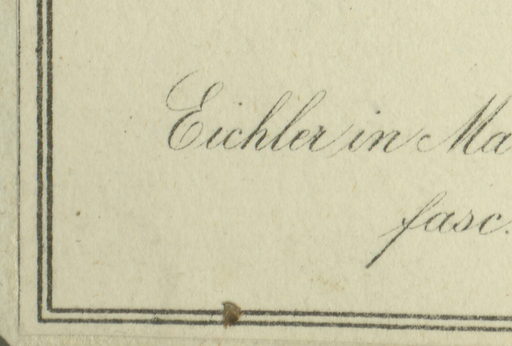 Eichler in Ma
fasc.